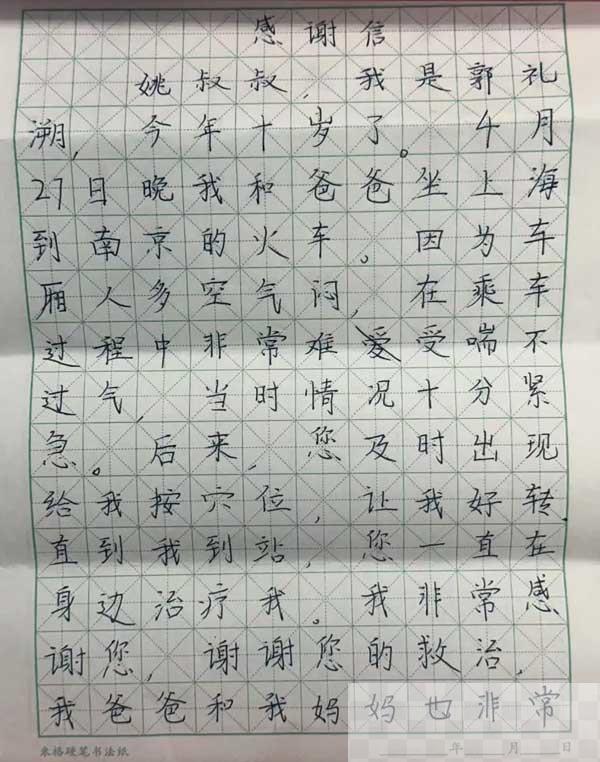 感谢信
姚叔叔,我是郭礼
溯,今年十岁了。4月
27日晚我和爸爸坐上海
到南京的火车。因为车
厢人多空气闷,在乘车
过程中非常难受喘不
过气,当时情况十分紧
急。后来,您及时出现
给我按穴位,让我好转
直到我到站,您一直在
身边治疗我。我非常感
谢您,谢谢您的救治,
我爸爸和我妈妈也非常
米格硬笔书法纸 年 月 日